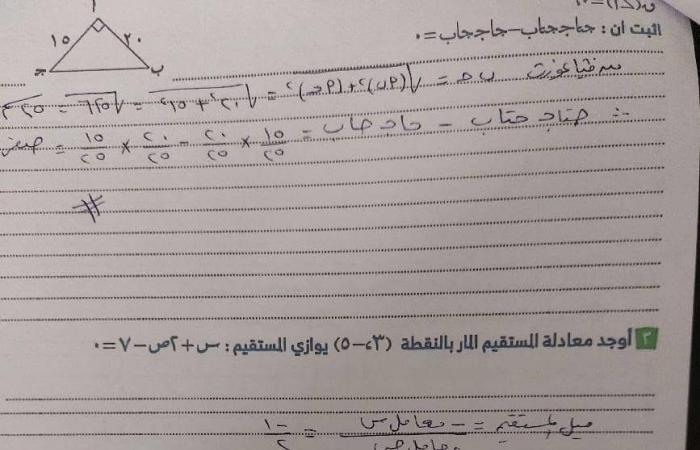 اثبت ان : جتاجـ جتاب - جاجـ جاب = ٠
أ
١٥ ٢٠
جـ ب
من فيثاغورث ب جـ = √(أب)² + (أجـ)² = √٢٠² + ١٥² = ٢٥
∴ جتاجـ جتاب - جاجـ جاب = ١٥/٢٥ × ٢٠/٢٥ - ٢٠/٢٥ × ١٥/٢٥ = صفر
#
٢ أوجد معادلة المستقيم المار بالنقطة (٣، -٥) يوازي المستقيم : س + ٢ص - ٧ = ٠
ميل المستقيم = - معامل س / معامل ص = -١/٢